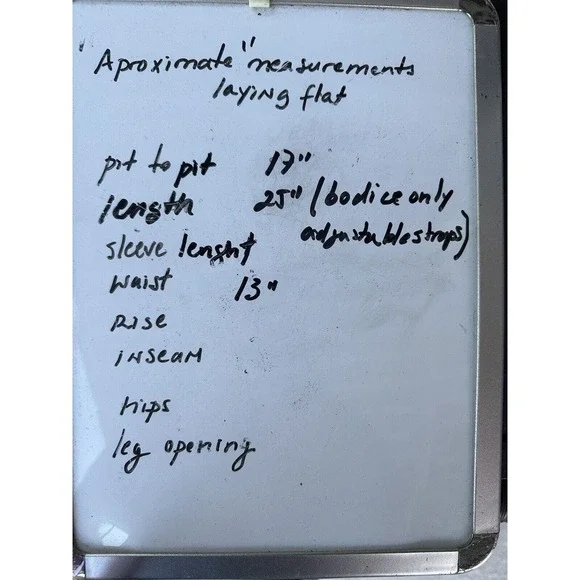 "Aproximate" measurements
laying flat
pit to pit 17"
length 25" (bodice only
adjustable straps)
sleeve lenght
waist 13"
Rise
inseam
hips
leg opening